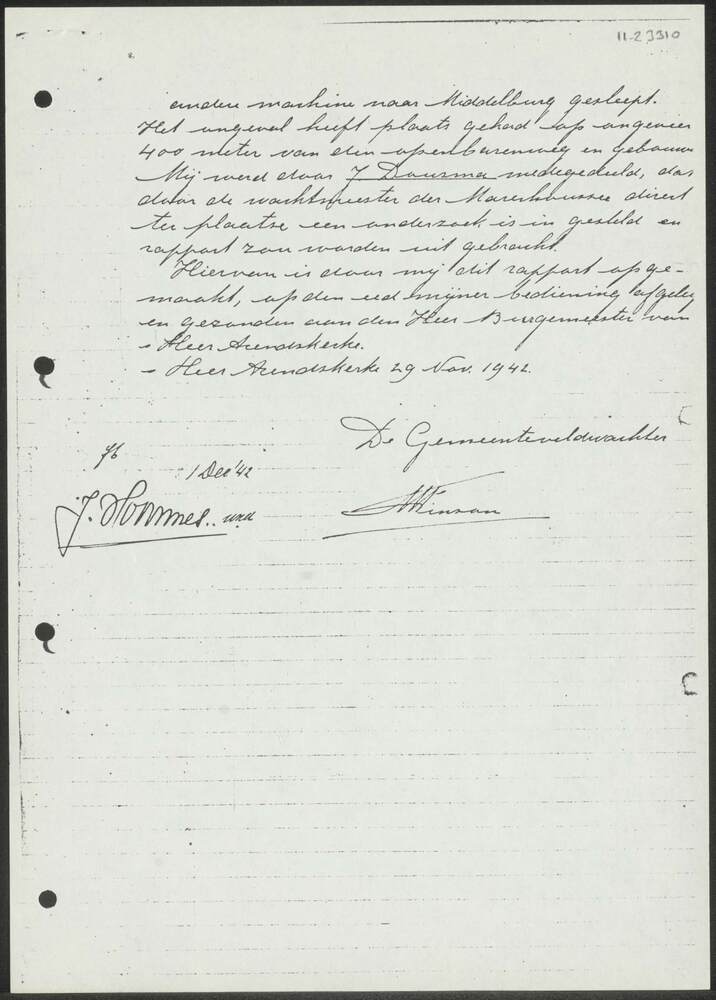 11-2 3310
2.
andere machine naar Middelburg gesleept.
Het ongeval heeft plaats gehad op ongeveer
400 meter van den openbarenweg en gebouwen
Mij werd door J. Dousma medegedeeld, dat
door de wachtmeester der Marechaussee direct
ter plaatse een onderzoek is in gesteld en
rapport zou worden uit gebracht.
Hiervan is door mij dit rapport opge-
maakt, op den eed mijner bediening afgeleg
en gezonden aan den Heer Burgemeester van
- Heer Arendskerke.
- Heer Arendskerke 29 Nov. 1942.
De Gemeenteveldwachter
1 Dec '42
J. Hommes.